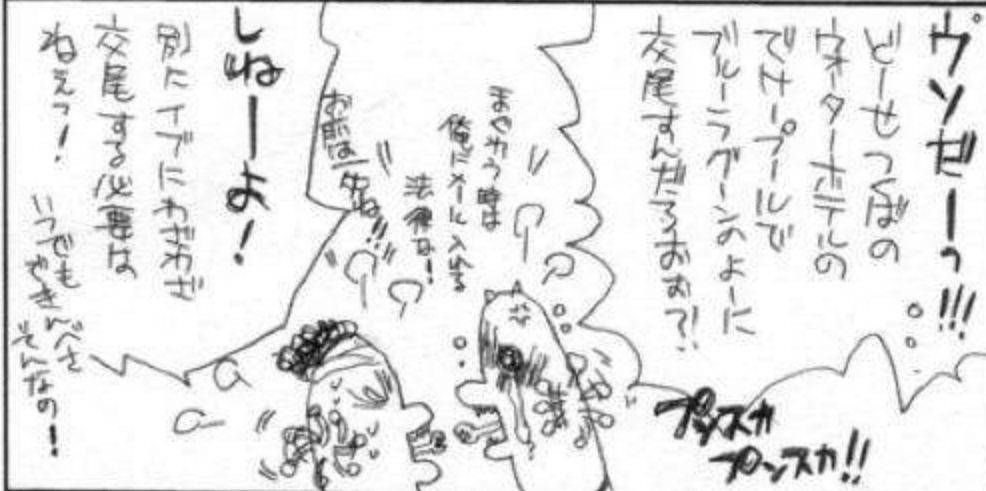 ウソだーっ!!!
どーせつくばの
ウォーターホテルの
でけープールで
ブルーラグーンのよーに
交尾すんだろおお?!
プンスカ
プンスカ!!
まぐわう時は
俺にメール入れる
法律な!
お前は一生ね!!
しねーよ!
別にイブにわざわざ
交尾する必要は
ねえっ!
いつでも
できんべさ
そんなの!